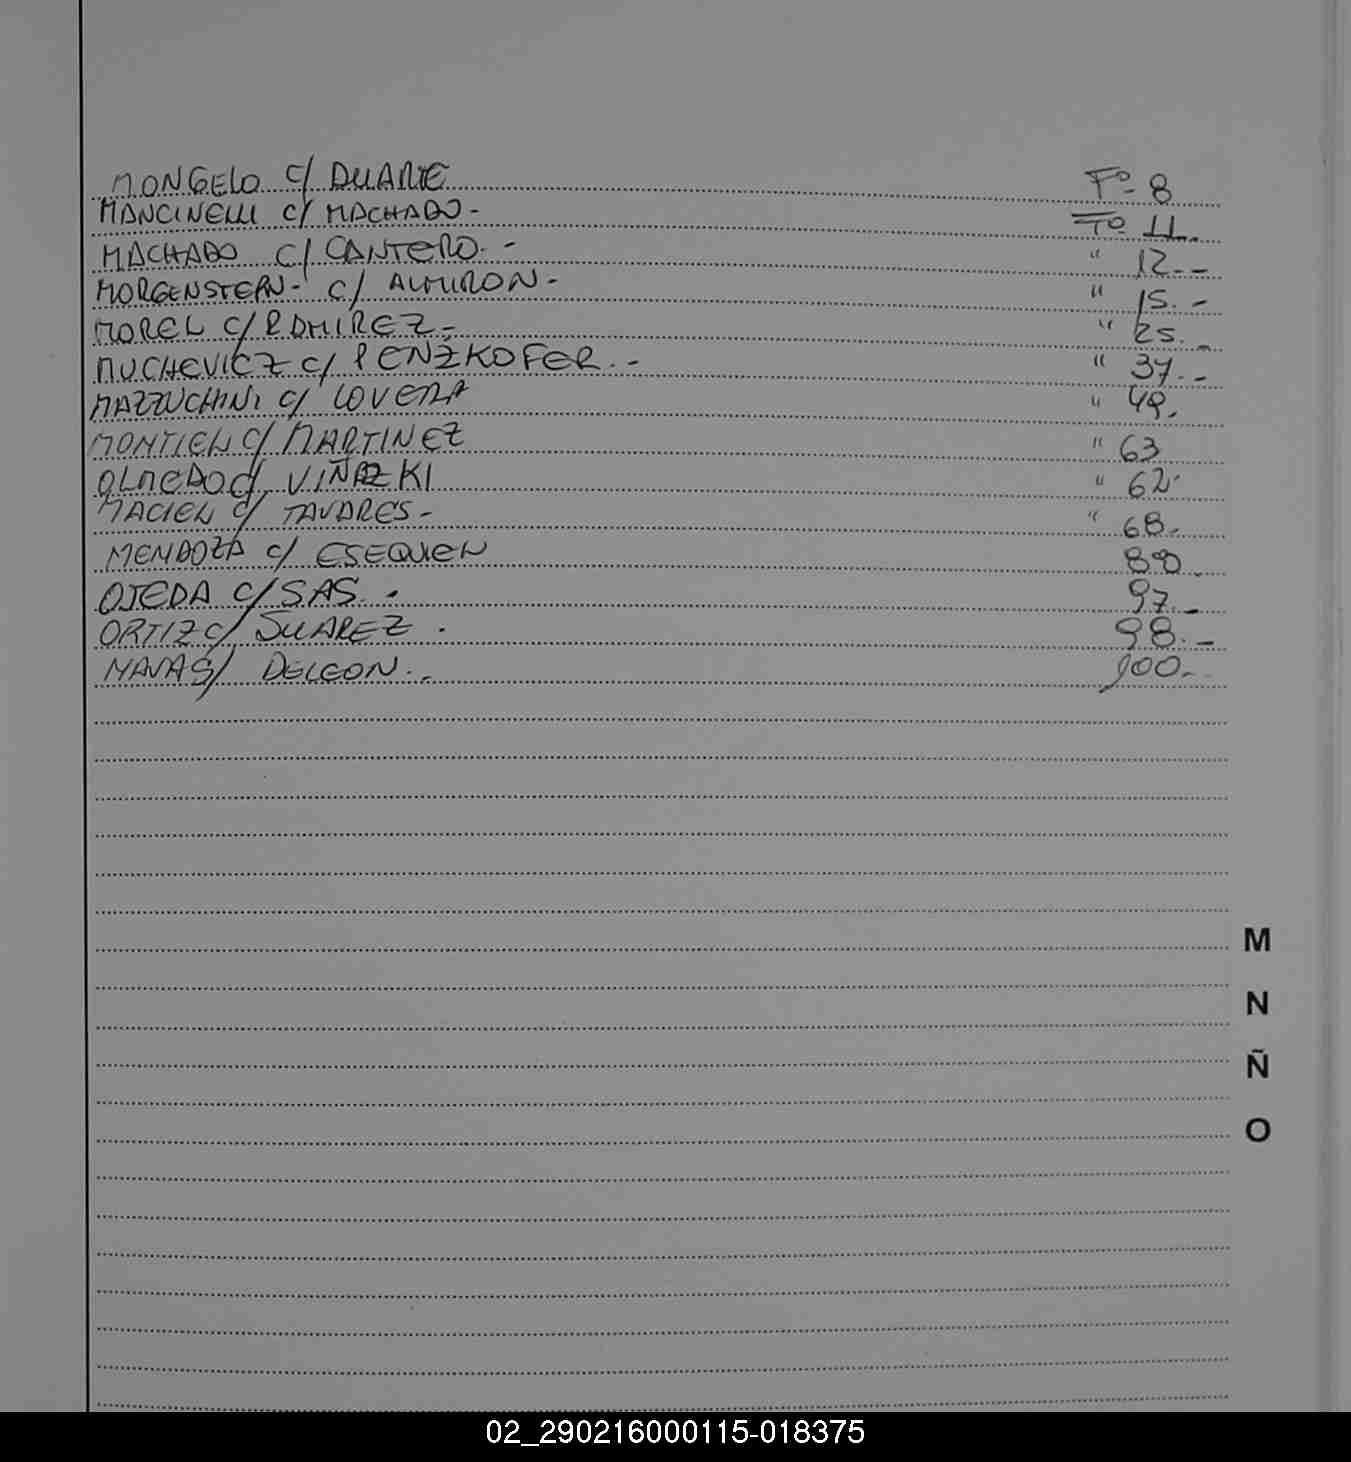 MONGELO c/ DUARTE Fº- 8
MANCINELLI c/ MACHADO - Fº 11.
MACHADO c/ CANTERO. - " 12. -
MORGENSTERN - c/ ALMIRON - " 15. -
MOREL c/ RAMIREZ - " 25. -
MUCHEVICZ c/ PENZKOFER. - " 37. -
MAZZUCHINI c/ LOVERA " 49.
MONTIEL c/ MARTINEZ " 63
OLMEDO c/ " 62
MACIEL c/ TAVARES - " 68.
MENDOZA c/ ESEQUIEL
OJEDA c/ SAS. - 97. -
ORTIZ c/ SUAREZ . 98. -
DELEON. . 100. -
M
N
Ñ
O
02_290216000115-018375